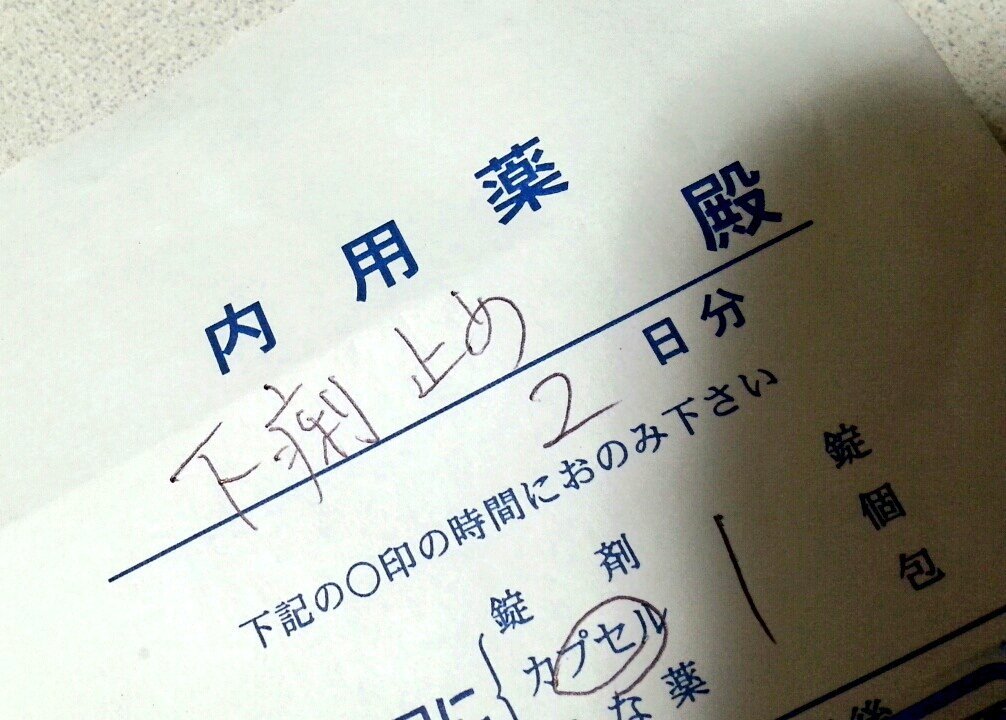 内用薬
下痢止め 殿
2 日分
下記の〇印の時間におのみ下さい
錠剤 錠
カプセル 個
な薬 包
後